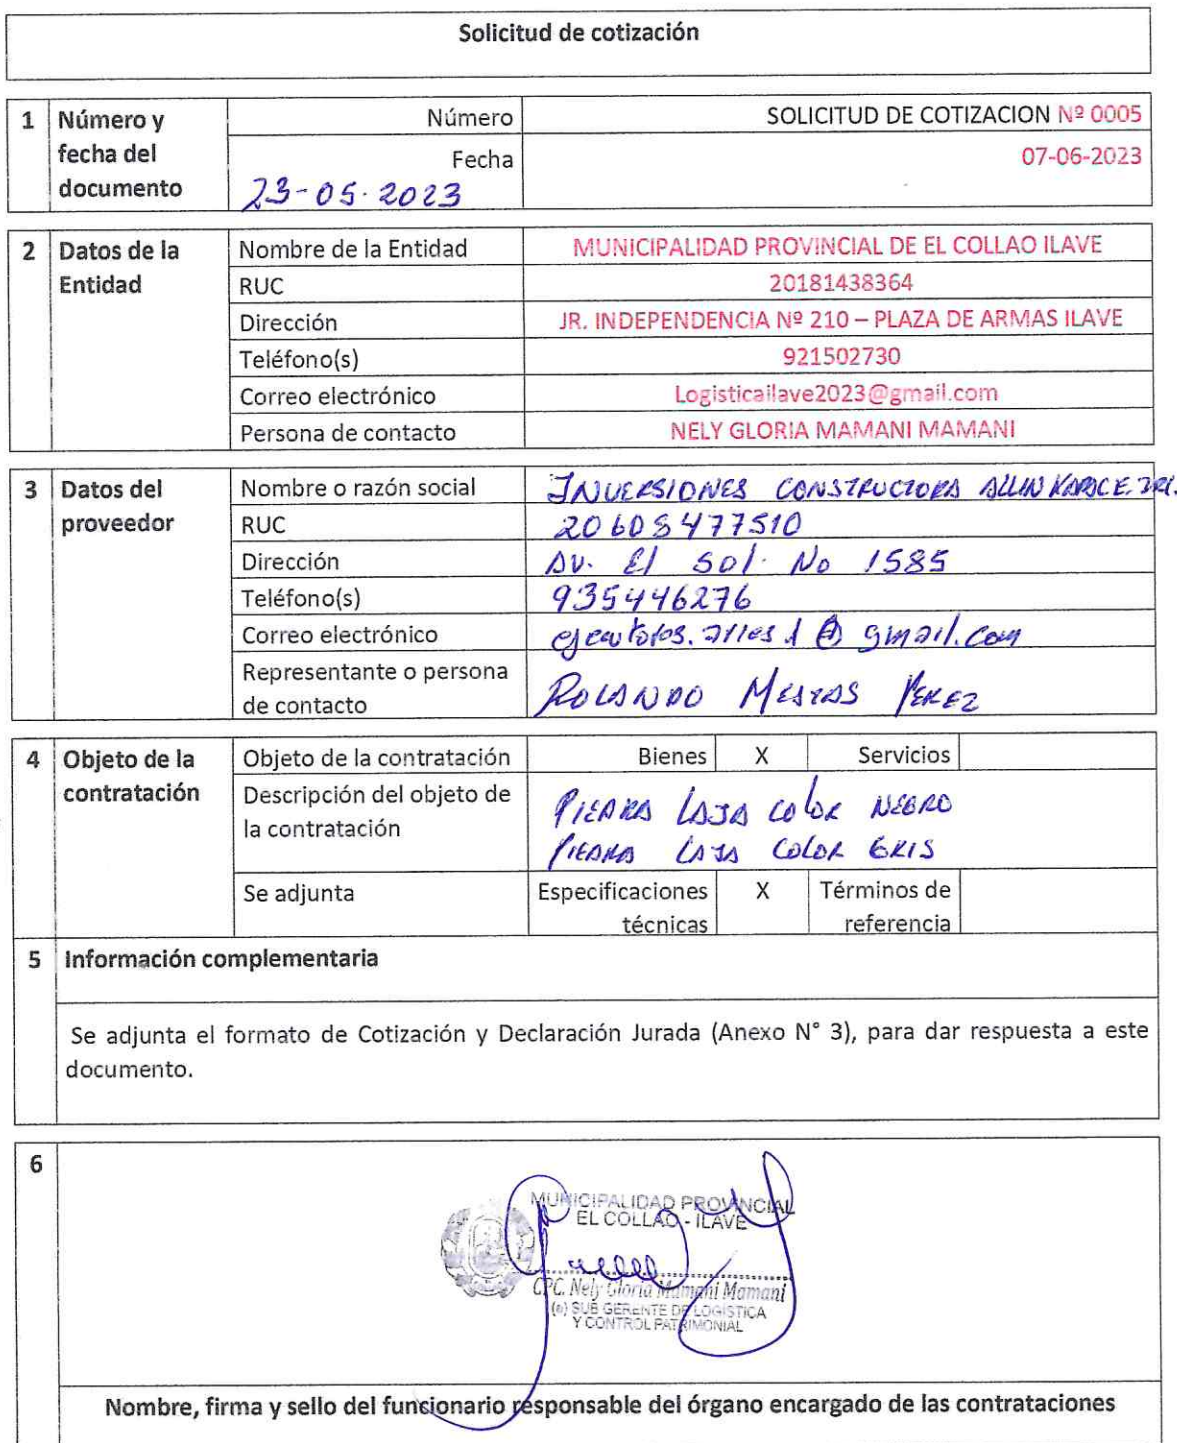 Solicitud de cotización
1 Número y fecha del documento
Número SOLICITUD DE COTIZACION Nº 0005
Fecha 07-06-2023
23-05-2023
2 Datos de la Entidad
Nombre de la Entidad MUNICIPALIDAD PROVINCIAL DE EL COLLAO ILAVE
RUC 20181438364
Dirección JR. INDEPENDENCIA Nº 210 – PLAZA DE ARMAS ILAVE
Teléfono(s) 921502730
Correo electrónico Logisticailave2023@gmail.com
Persona de contacto NELY GLORIA MAMANI MAMANI
3 Datos del proveedor
Nombre o razón social INVERSIONES CONSTRUCTORA ALLIN KAPAC E.IRL.
RUC 20608477510
Dirección AV. El Sol. No 1585
Teléfono(s) 935446276
Correo electrónico @ gmail.com
Representante o persona de contacto ROLANDO MESTAS PEREZ
4 Objeto de la contratación
Objeto de la contratación Bienes X Servicios
Descripción del objeto de la contratación
PIEDRA LAJA COLOR NEGRO
PIEDRA LAJA COLOR GRIS
Se adjunta Especificaciones técnicas X Términos de referencia
5 Información complementaria
Se adjunta el formato de Cotización y Declaración Jurada (Anexo N° 3), para dar respuesta a este
documento.
6
MUNICIPALIDAD PROVINCIAL
EL COLLAO - ILAVE
CPC. Nely Gloria Mamani Mamani
(e) SUB GERENTE DE LOGISTICA
Y CONTROL PATRIMONIAL
Nombre, firma y sello del funcionario responsable del órgano encargado de las contrataciones